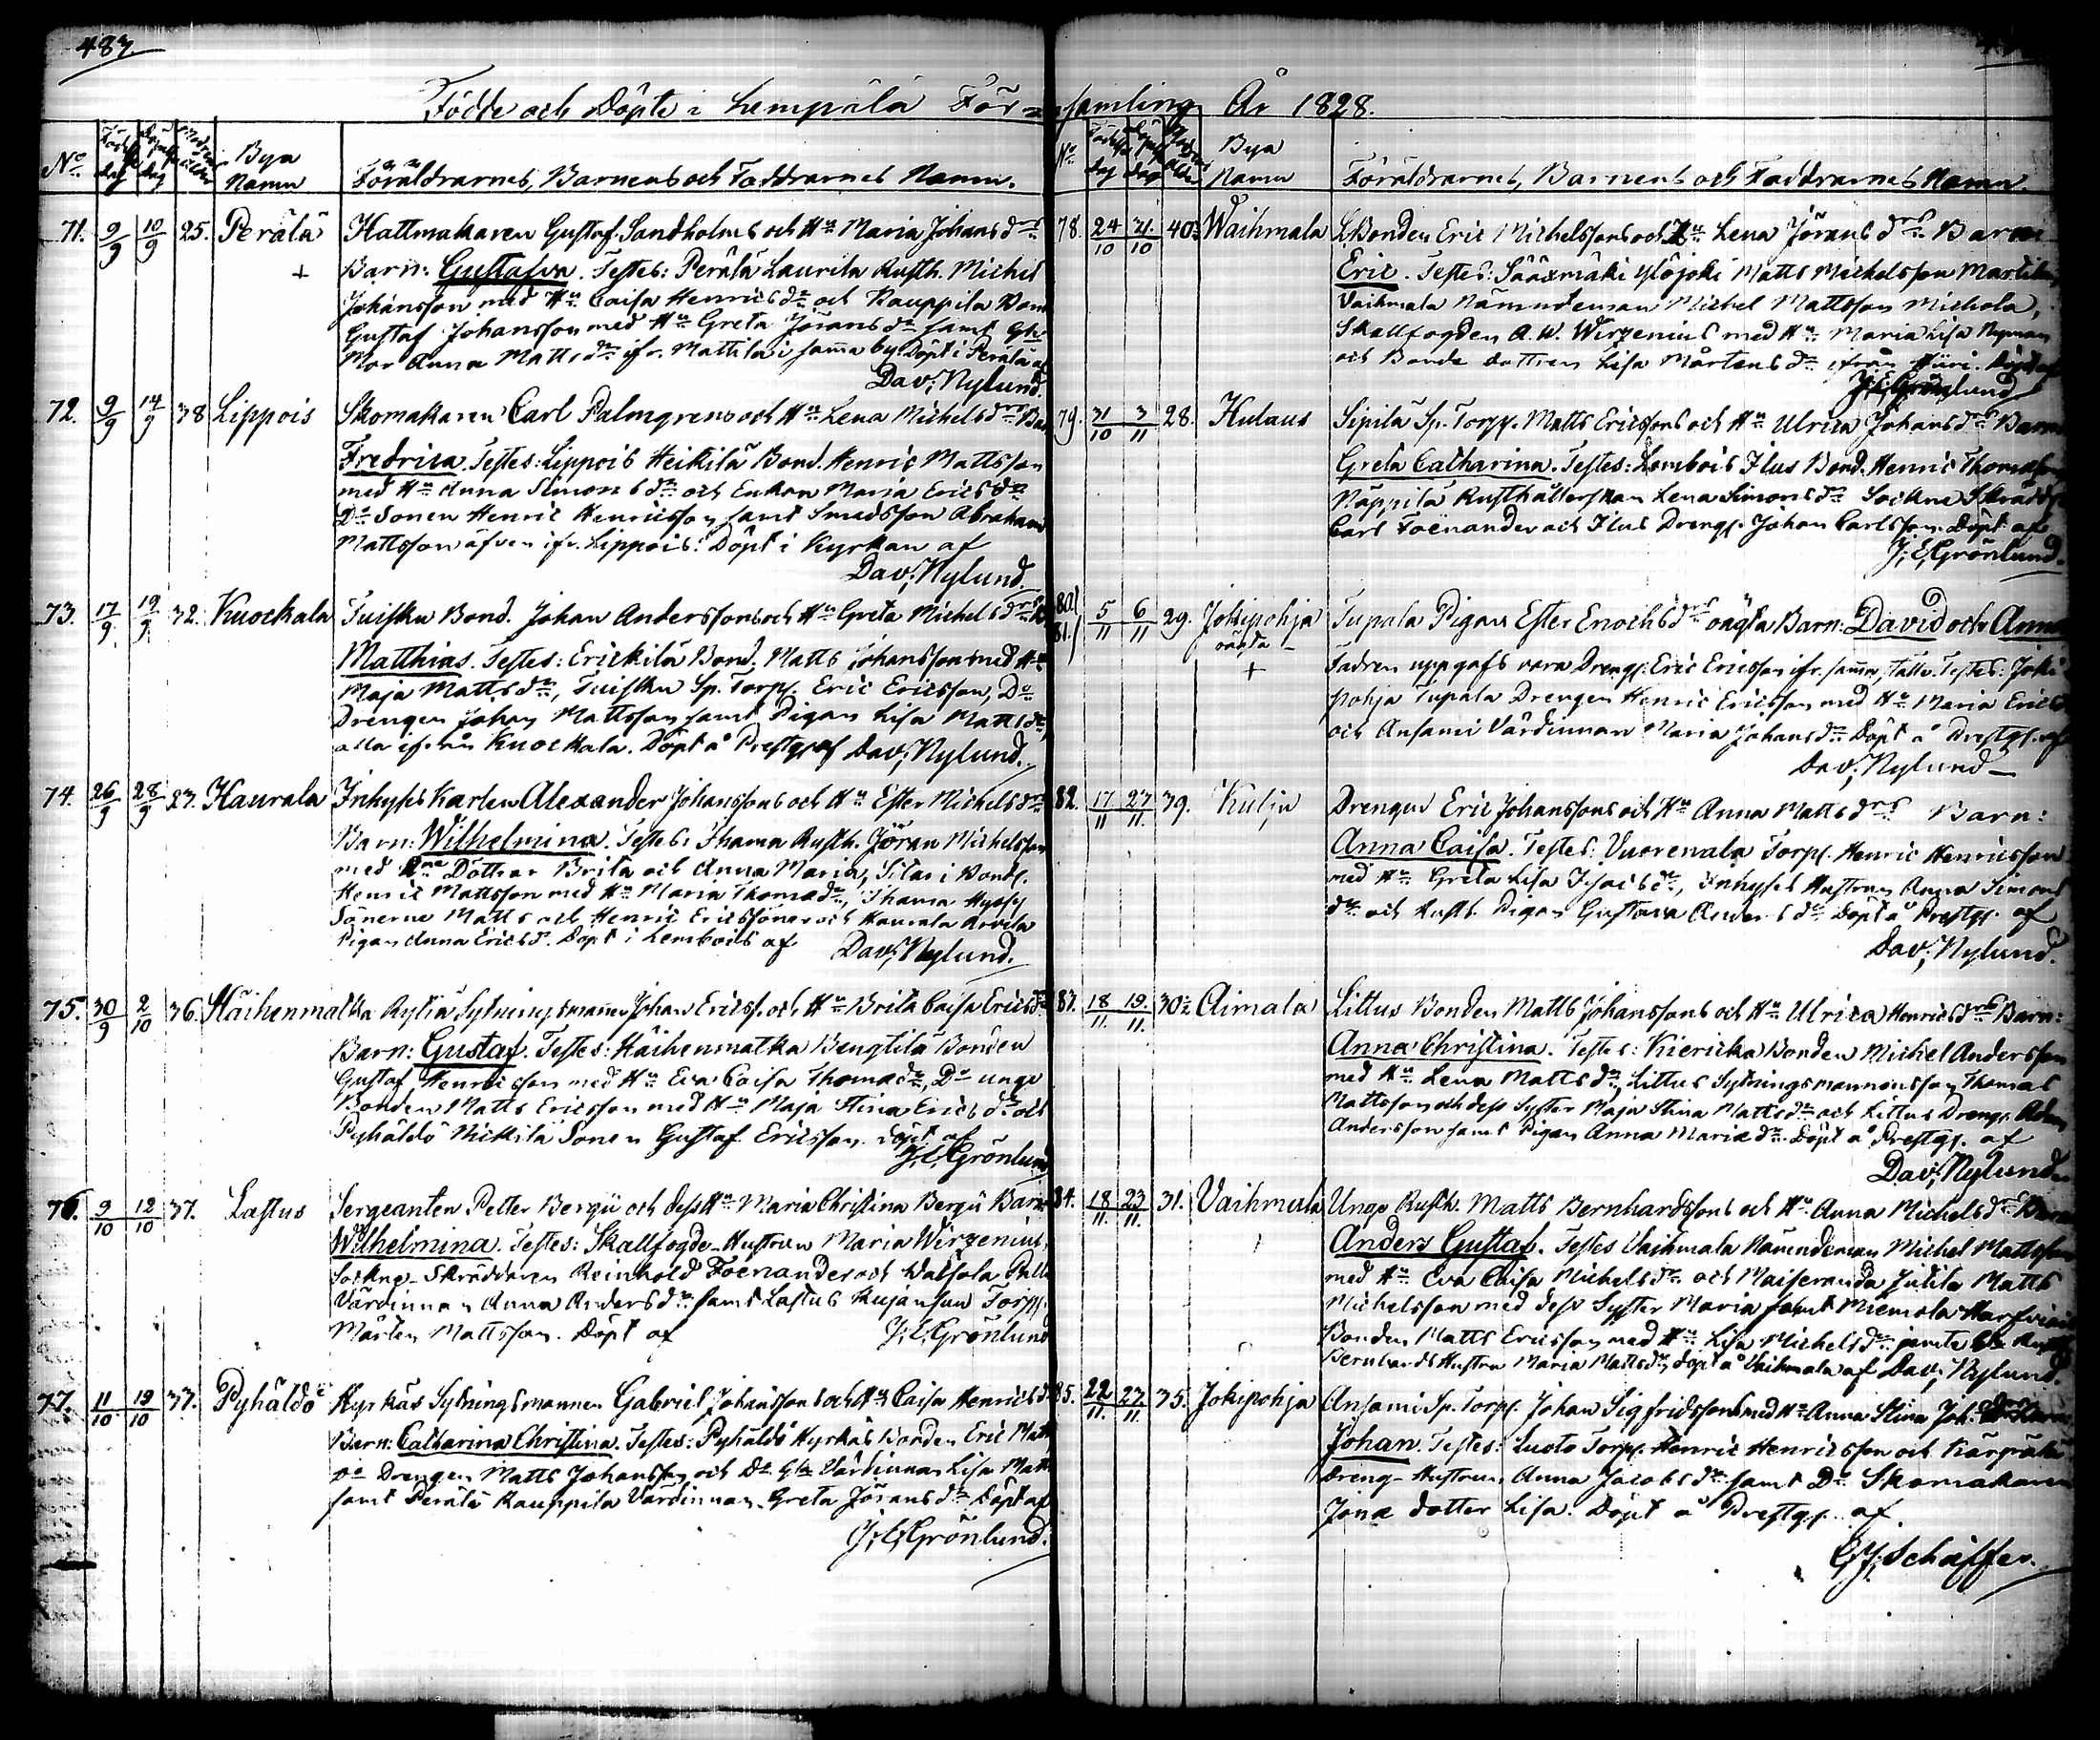 487.
Födde och Döpte i Lempälä För=samling År 1828.
No Födelse dag Döpelse dag Modrens ålder Bya Namn Föräldrarnes, Barnens och Faddrarnes Namn.
71. 9/9 10/9 25. Perälä Hattmakaren Gustaf Sandholms och Hu Maria Johansdrs
+ Barn: Gustafva. Testes: Perälä Laurila Rusth. Michel
Johansson med Hu Caisa Henricsdr och Rauppila Bond
Gustaf Johansson med Hu Greta Jöransdr samt Gla
Mor Anna Mattsdr ifr. Mattila i samma by. Döpt i Perälä af
Dav; Nylund.
72. 9/9 14/9 38 Lippois Skomakaren Carl Palmgrens och Hu Lena Michelsdrs Bar
Fredrica. Testes: Lippois Heikilä Bond. Henric Mattsson
med Hu Anna Simonsdr och Enkan Maria Ericsdr
Do Sonen Henric Henricsson samt Smedsson Abraham
Mattsson äfven ifr. Lippois. Döpt i Kyrkan af
Dav; Nylund.
73. 17/9 19/9 32. Kuockala Tuisku Bond. Johan Anderssons och Hu Greta Michelsdrs B
Matthias. Testes: Erickilä Bond. Matts Johansson med Hu
Maja Mattsdr, Tuisku Sp. Torp. Eric Ericsson, Do
Drengen Johan Mattsson samt Pigan Lisa Mattsdr
alla ifrån Kuockala. Döpt å Prestg. af Dav; Nylund.
74. 26/9 28/9 27. Haurala Inhyses Karlen Alexander Johanssons och Hu Ester Michelsdrs
Barn: Wilhelmina. Testes: Ihama Rusth. Jöran Michelsson
med Döttrar Brita och Anna Maria, Sitari Bond.
Henric Mattsson med Hu Maria Thomadr, Ihama
Sönerne Matts och Henric Ericssöner och Haurala Arvela
Pigan Anna Ericsdr. Döpt i Lembois af Dav; Nylund.
75. 30/9 2/10 36. Häihenmatka Rytiä Sytningsmannen Johan Ericss. och Hu Brita Caisa Ericsdrs
Barn: Gustaf. Testes: Häihenmatka Bengtilä Bonden
Gustaf Henricsson med Hu Eva Caisa Thomadr, Do unge
Bonden Matts Ericsson med Hu Maja Stina Ericsdr och
Pyhäldö Nickilä Sonen Gustaf Ericsson. Döpt af
J; E; Grönlund
76. 9/10 12/10 37. Lastus Sergeanten Petter Bergii och dess Hu Maria Christina Bergii Barn
Wilhelmina. Testes: Skallfogde-Hustrun Maria Wirzenius,
Sockne-Skräddaren Reinhold Foenander och Walsola
Värdinnan Anna Andersdr samt Lastus Rujansuu Torp.
Mårten Mattsson. Döpt af J; E; Grönlund
77. 11/10 19/10 37. Pyhäldö Kyrkäs Sytningsmannen Gabriel Johanssons och Hu Caisa Henricsd
Barn: Catharina Christina. Testes: Pyhäldö Kyrkäs Bonden Eric Matt
Do Drengen Matts Johansson och Do Gla Värdinnan Lisa Matt
samt Perälä Rauppila Värdinnan Greta Jöransdr. Döpt af
J; E; Grönlund.
No Födelse dag Döpelse dag Modrens ålder Bya Namn Föräldrarnes, Barnens och Faddrarnes Namn
78. 24/10 31/10 40. Waihmala LBonden Eric Michelssons och Hu Lena Jöransdrs Barn
Eric. Testes: Sääxmäki Ylöjoki Matts Michelsson Martila,
Vaihmala Nämndeman Michel Mattsson Michola,
Skallfogden A. W. Wirzenius med Hu Maria Lisa Nyman
och Bonde dottren Lisa Mårtensdr ifrån Hiiri. Döpt af
J; E; Grönlund
79. 31/10 3/11 28. Hulaus Sipilä Sp. Torp. Matts Ericssons och Hu Ulrica Johansdrs Barn
Greta Catharina. Testes: Lembois Ilus Bond. Henric Thomasson
Näppilä Rusthållerskan Lena Simonsdr Sockne Skrädd.
Carl Foenander och Ilus Drengs. Johan Carlsson. Döpt af
J; E; Grönlund.
80. 81. 5/11 6/11 29. Jokipohja Tupala Pigan Ester Enochsdrs oägta Barn: David och Anna
oägta + Fadren uppgafs vara Dreng. Eric Ericsson ifr. samma ställe. Testes: Joki
pohja Tupala Drengen Henric Ericsson med Hu Maria Ericsd
och Ansami Värdinnan Maria Johansdr. Döpt å Prestg. af
Dav; Nylund
82. 17/11 23/11 39. Kulju Drengen Eric Johanssons och Hu Anna Mattsdrs Barn:
Anna Caisa. Testes: Vuorenala Torp. Henric Henricsson
med Hu Greta Lisa Isacsdr, Inhyses Hustrun Anna Simons
dr och Rusth. Pigan Gustava Andersdr Döpt å Prestg. af
Dav; Nylund.
83. 18/11 19/11 30 Aimala Littus Bonden Matts Johanssons och Hu Ulrica Henricsdrs Barn:
Anna Christina. Testes: Kiericka Bonden Michel Andersson
med Hu Lena Mattsdr, Littus Sytningsmannensson Thomas
Mattsson och dess Syster Maja Stina Mattsdr och Littus Dreng. Adam
Andersson samt Pigan Anna Mariadr. Döpt å Prestg. af
Dav; Nylund.
84. 18/11 23/11 31. Vaihmala Unge Rusth. Matts Bernhardssons och Hu Anna Michelsdrs Barn
Anders Gustaf. Testes Vaihmala Nämndeman Michel Mattsson
med Hu Eva Caisa Michelsdr och Maiseranda Jutila Matts
Michelsson med dess Syster Maria samt Miemola
Bonden Matts Ericsson med Hu Lisa Michelsdr jemte Gla Rusth.
Bernhards Hustru Maria Mattsdr, döpt å Vaihmala af Dav; Nylund.
85. 22/11 23/11 35. Jokipohja Ansami Sp. Torp. Johan Sigfridssons med Hu Anna Stina Joh. Barn
Johan. Testes: Luoto Torp. Henric Henricsson och
Dreng-Hustrun Anna Jacobsdr samt Do Skomakaren
Jona dotter Lisa. Döpt å Prestg. af
G; J; Schæffer.